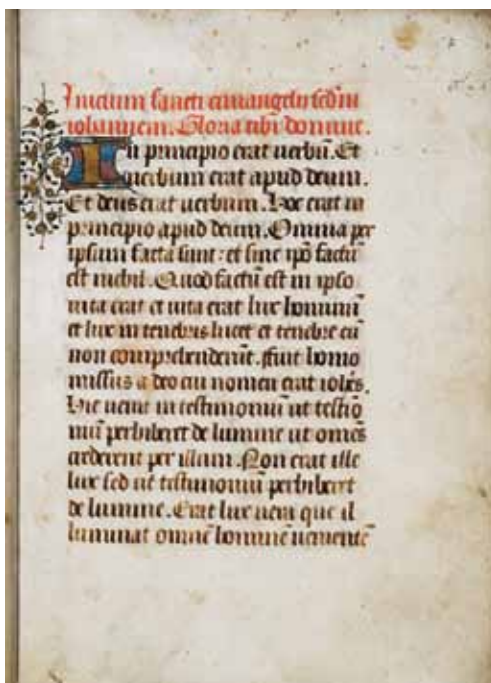 Inicium sancti euuangelii scdm
iohannem. Gloria tibi domine.
In principio erat uerbū. Et
uerbum erat apud deum.
Et deus erat uerbum. Hoc erat in
principio apud deum. Omnia per
ipsum facta sunt: et sine ipō factū
est nichil. Quod factū est in ipso
uita erat et uita erat lux hominū
et lux in tenebris lucet et tenebre eā
non comprehenderūt. ffuit homo
missus a deo cui nomen erat iohēs.
Hic uenit in testimoniū ut testio
niū perhiberet de lumine ut omēs
crederent per illum. Non erat ille
lux sed ut testimoniū perhiberet
de lumine. Erat lux uera que il
luminat omnē hominē uenientē